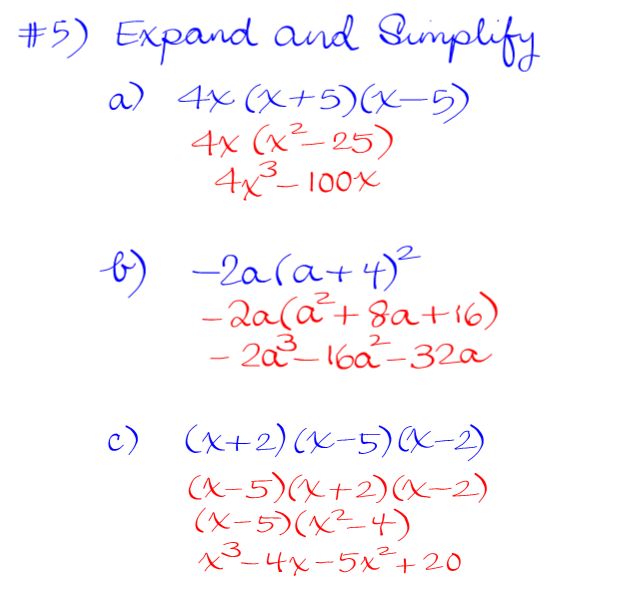 #5) Expand and Simplify
a) 4x(x+5)(x-5)
4x(x²-25)
4x³-100x
b) -2a(a+4)²
-2a(a²+8a+16)
-2a³-16a²-32a
c) (x+2)(x-5)(x-2)
(x-5)(x+2)(x-2)
(x-5)(x²-4)
x³-4x-5x²+20